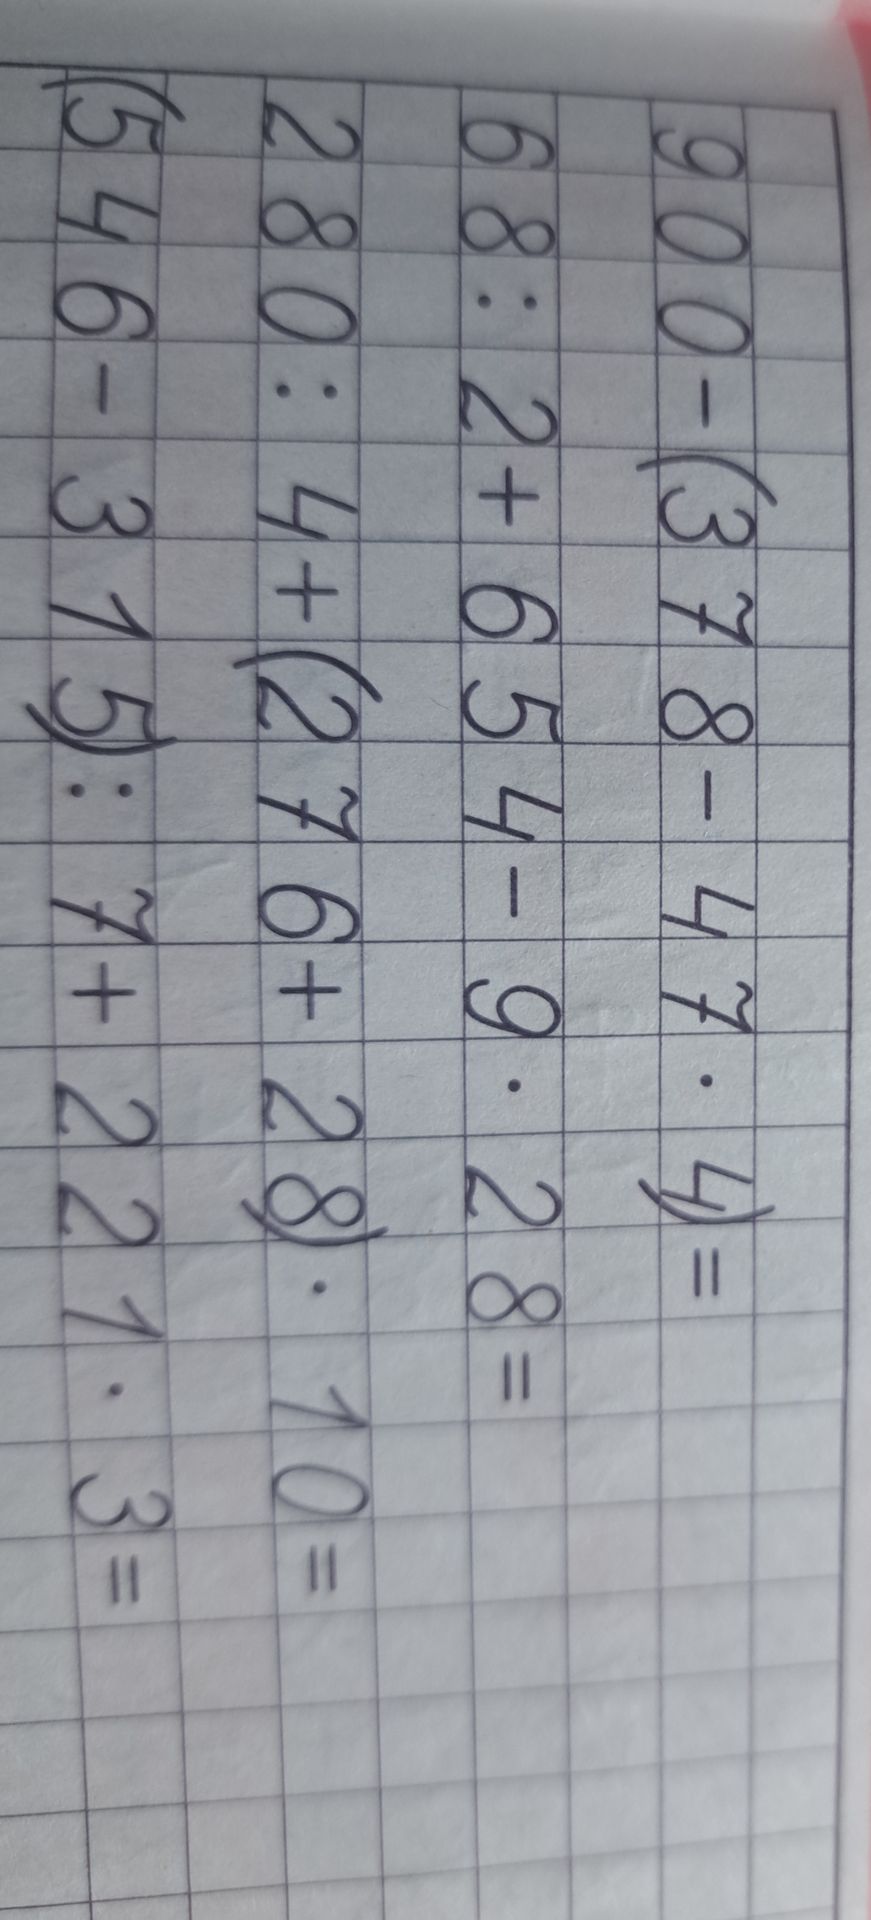 900-(378-47·4)=
68:2+654-9·28=
280:4+(276+28)·10=
(546-315):7+221·3=